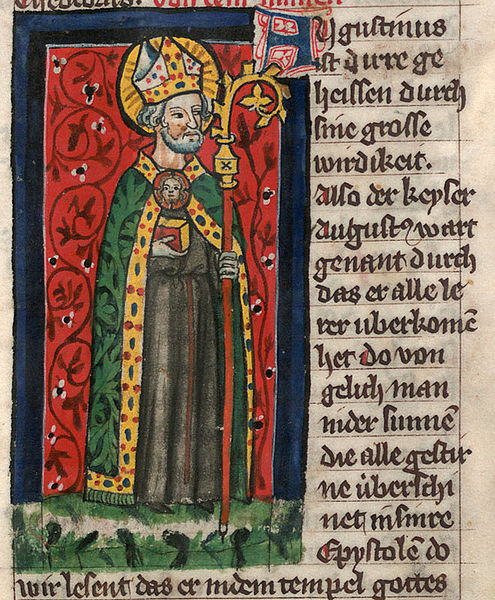 Theodorus. Von dem namen
Augustinus
ist durre ge
heissen durch
sine grosse
wirdikeit.
Also der keyser
Augustꝰ wart
genant durch
das er alle le
rer úberkomē
het do von
gelich man
in der sunnē
die alle gestir
ne úberschi
net in sinre
Epystolē do
wir lesent das er in dem tempel gottes